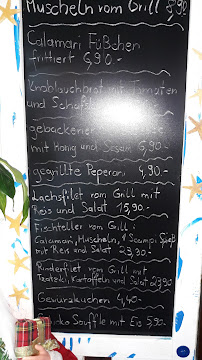 Muscheln vom Grill 8,90
Calamari Füßchen
frittiert 6,90.-
Knoblauchbrot mit Tomaten
und Schafskäse
gebackener
mit Honig und Sesam 6,90.-
gegrillte Peperoni 4,90.-
Lachsfilet vom Grill mit
Reis und Salat 15,90.-
Fischteller vom Grill:
Calamari, Muscheln, 1 Scampi Spieß
mit Reis und Salat 23,90.-
Rinderfilet vom Grill mit
Tzatziki, Kartoffeln und Salat 23,90
Gewürzkuchen 4,40.-
Souffle mit Eis 5,90.-